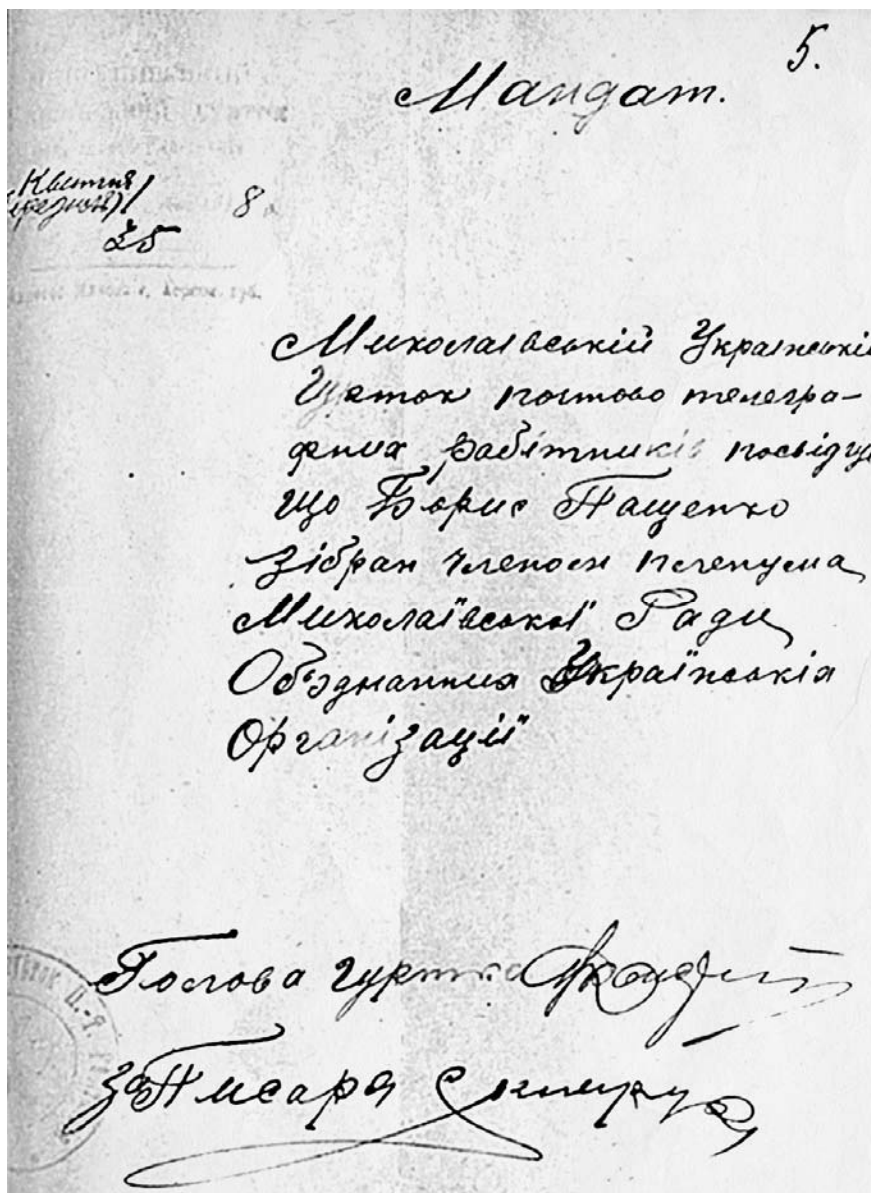 5.
Мандат.
Квітня
25
8
Миколаівській Українські
Гурток постово телегра-
фних работників посвідчу
що Борис Пащенко
зібран членом пленума
Миколаївської Ради
Об'єднанния Українськія
Організації
Голова гуртка
За Писара